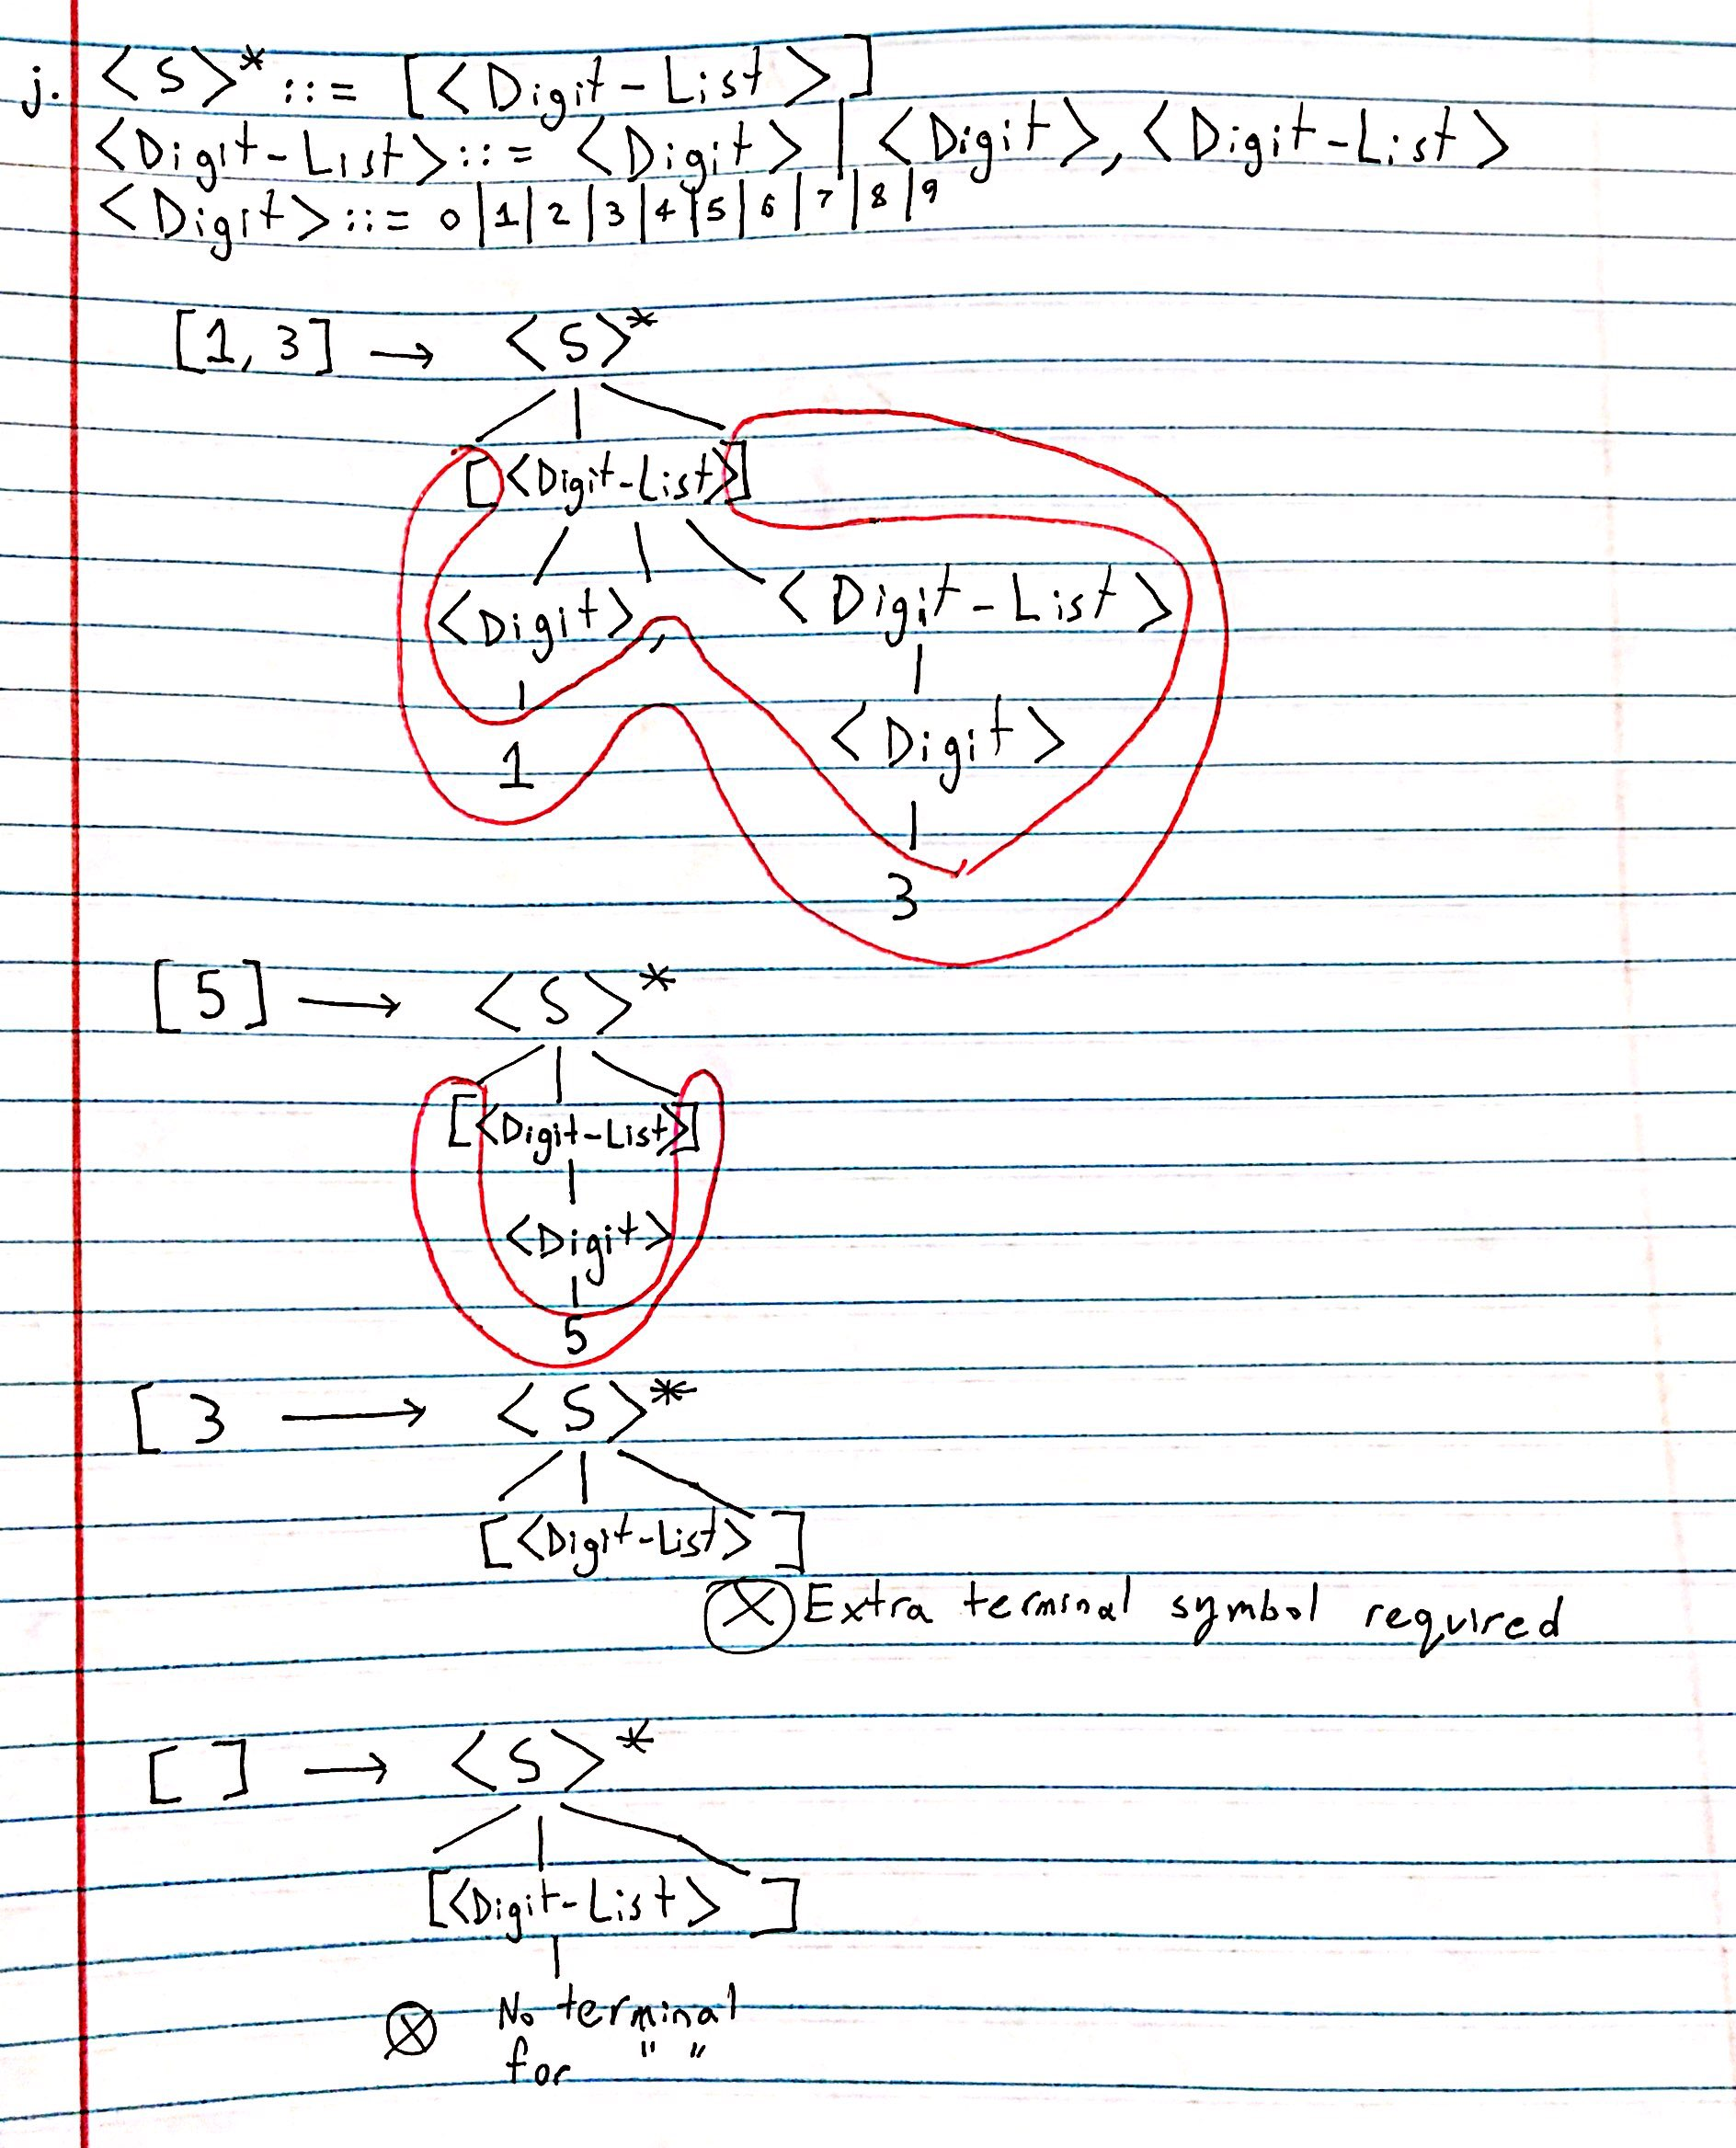 j. <S>* ::= [<Digit-List>]
<Digit-List>::= <Digit> | <Digit>,<Digit-List>
<Digit>::= 0|1|2|3|4|5|6|7|8|9
[1,3] → <S>*
[<Digit-List>]
<Digit> , <Digit-List>
<Digit>
1
3
[5] → <S>*
[<Digit-List>]
<Digit>
5
[3 → <S>*
[<Digit-List>]
Ⓧ Extra terminal symbol required
[ ] → <S>*
[<Digit-List> ]
Ⓧ No terminal
for " "